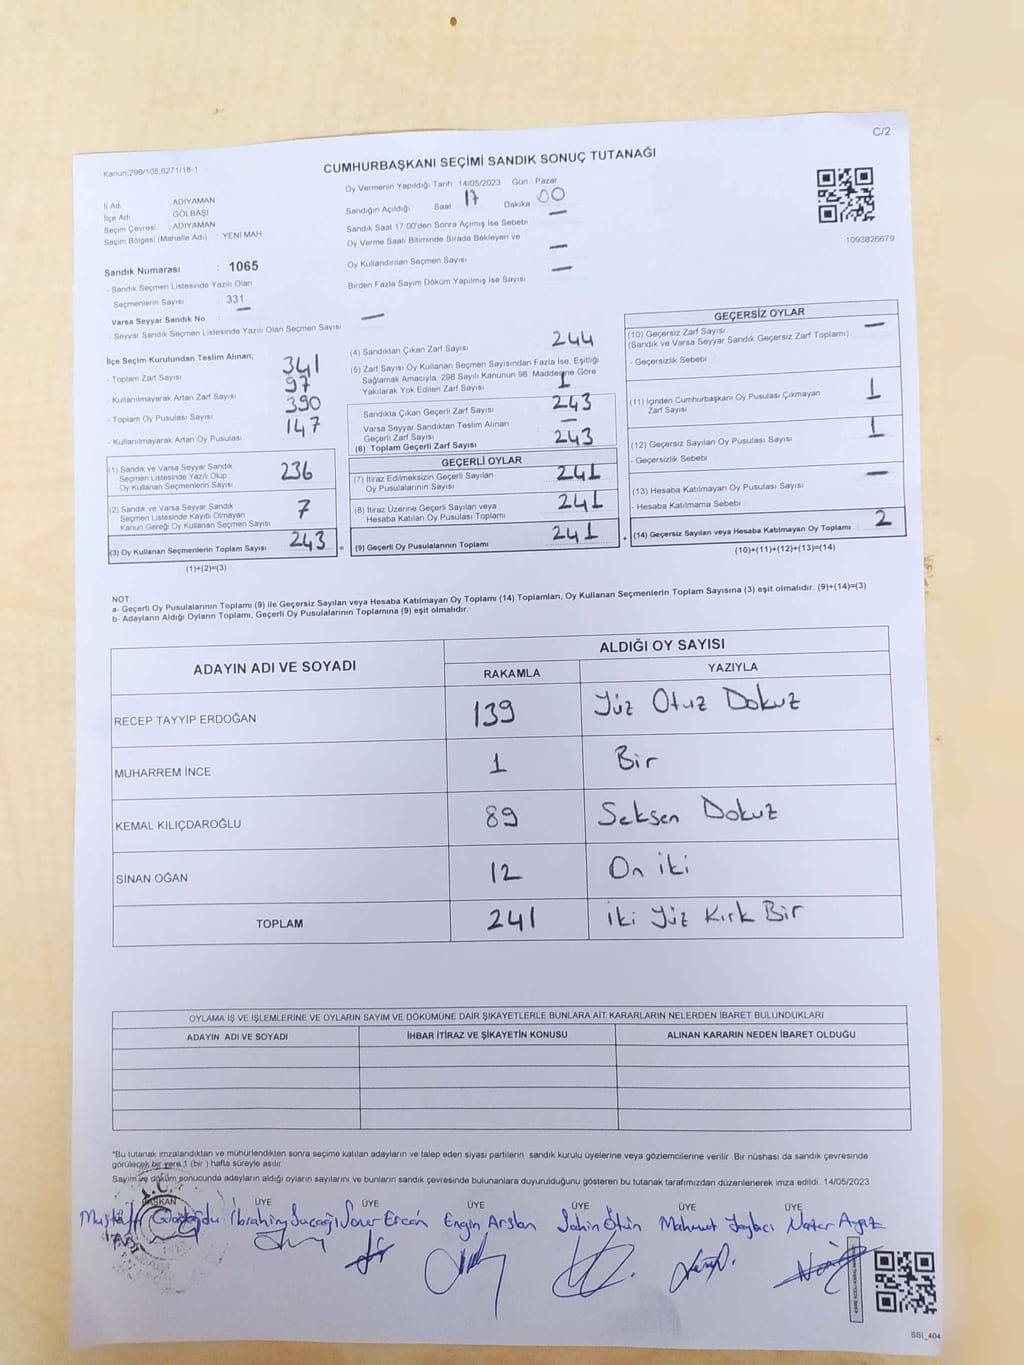 C/2
Kanun;298/105,6271/18-1
CUMHURBAŞKANI SEÇİMİ SANDIK SONUÇ TUTANAĞI
İl Adı : ADIYAMAN
İlçe Adı : GÖLBAŞI
Seçim Çevresi : ADIYAMAN
Seçim Bölgesi (Mahalle Adı) : YENİ MAH
Sandık Numarası : 1065
- Sandık Seçmen Listesinde Yazılı Olan
Seçmenlerin Sayısı : 331
Varsa Seyyar Sandık No : —
- Seyyar Sandık Seçmen Listesinde Yazılı Olan Seçmen Sayısı —
Oy Vermenin Yapıldığı Tarih 14/05/2023 Gün Pazar
Sandığın Açıldığı Saat 17 Dakika 00
Sandık Saat 17:00'den Sonra Açımış İse Sebebi —
Oy Verme Saati Bitiminde Sırada Bekleyen ve
Oy Kullandırılan Seçmen Sayısı —
Birden Fazla Sayım Döküm Yapılmış İse Sayısı —
1093826679
İlçe Seçim Kurulundan Teslim Alınan;
- Toplam Zarf Sayısı 341
- Kullanılmayarak Artan Zarf Sayısı 97
- Toplam Oy Pusulası Sayısı 390
- Kullanılmayarak Artan Oy Pusulası 147
(1) Sandık ve Varsa Seyyar Sandık
Seçmen Listesinde Yazılı Olup
Oy Kullanan Seçmenlerin Sayısı 236
(2) Sandık ve Varsa Seyyar Sandık
Seçmen Listesinde Kayıtlı Olmayan
Kanun Gereği Oy Kullanan Seçmen Sayısı 7
(3) Oy Kullanan Seçmenlerin Toplam Sayısı 243 =
(1)+(2)=(3)
(4) Sandıktan Çıkan Zarf Sayısı 244
(5) Zarf Sayısı Oy Kullanan Seçmen Sayısından Fazla İse, Eşitliği
Sağlamak Amacıyla, 298 Sayılı Kanunun 98. Maddesine Göre
Yakılarak Yok Edilen Zarf Sayısı 1
Sandıkta Çıkan Geçerli Zarf Sayısı 243
Varsa Seyyar Sandıktan Teslim Alınan
Geçerli Zarf Sayısı —
(6) Toplam Geçerli Zarf Sayısı 243
GEÇERLİ OYLAR
(7) İtiraz Edilmeksizin Geçerli Sayılan
Oy Pusulalarının Sayısı 241
(8) İtiraz Üzerine Geçerli Sayılan veya
Hesaba Katılan Oy Pusulası Toplamı 241
(9) Geçerli Oy Pusulalarının Toplamı 241 +
GEÇERSİZ OYLAR
(10) Geçersiz Zarf Sayısı —
(Sandık ve Varsa Seyyar Sandık Geçersiz Zarf Toplamı)
- Geçersizlik Sebebi :
(11) İçinden Cumhurbaşkanı Oy Pusulası Çıkmayan
Zarf Sayısı 1
(12) Geçersiz Sayılan Oy Pusulası Sayısı 1
- Geçersizlik Sebebi
(13) Hesaba Katılmayan Oy Pusulası Sayısı —
- Hesaba Katılmama Sebebi
(14) Geçersiz Sayılan veya Hesaba Katılmayan Oy Toplamı 2
(10)+(11)+(12)+(13)=(14)
NOT:
a- Geçerli Oy Pusulalarının Toplamı (9) ile Geçersiz Sayılan veya Hesaba Katılmayan Oy Toplamı (14) Toplamları, Oy Kullanan Seçmenlerin Toplam Sayısına (3) eşit olmalıdır. (9)+(14)=(3)
b- Adayların Aldığı Oyların Toplamı, Geçerli Oy Pusulalarının Toplamına (9) eşit olmalıdır.
ADAYIN ADI VE SOYADI
ALDIĞI OY SAYISI
RAKAMLA YAZIYLA
RECEP TAYYİP ERDOĞAN 139 Yüz Otuz Dokuz
MUHARREM İNCE 1 Bir
KEMAL KILIÇDAROĞLU 89 Seksen Dokuz
SİNAN OĞAN 12 On iki
TOPLAM 241 iki Yüz Kırk Bir
OYLAMA İŞ VE İŞLEMLERİNE VE OYLARIN SAYIM VE DÖKÜMÜNE DAİR ŞİKAYETLERLE BUNLARA AİT KARARLARIN NELERDEN İBARET BULUNDUKLARI
ADAYIN ADI VE SOYADI İHBAR İTİRAZ VE ŞİKAYETİN KONUSU ALINAN KARARIN NEDEN İBARET OLDUĞU
*Bu tutanak imzalandıktan ve mühürlendikten sonra seçime katılan adayların ve talep eden siyasi partilerin sandık kurulu üyelerine veya gözlemcilerine verilir. Bir nüshası da sandık çevresinde
görülecek bir yere 1 (bir ) hafta süreyle asılır.
Sayım ve döküm sonucunda adayların aldığı oyların sayılarını ve bunların sandık çevresinde bulunanlara duyurulduğunu gösteren bu tutanak tarafımızdan düzenlenerek imza edildi. 14/05/2023
T.C.
BAŞKAN ÜYE ÜYE ÜYE ÜYE ÜYE ÜYE
İbrahim Ercan Engin Arslan Şahin Mahmut
SSI_404